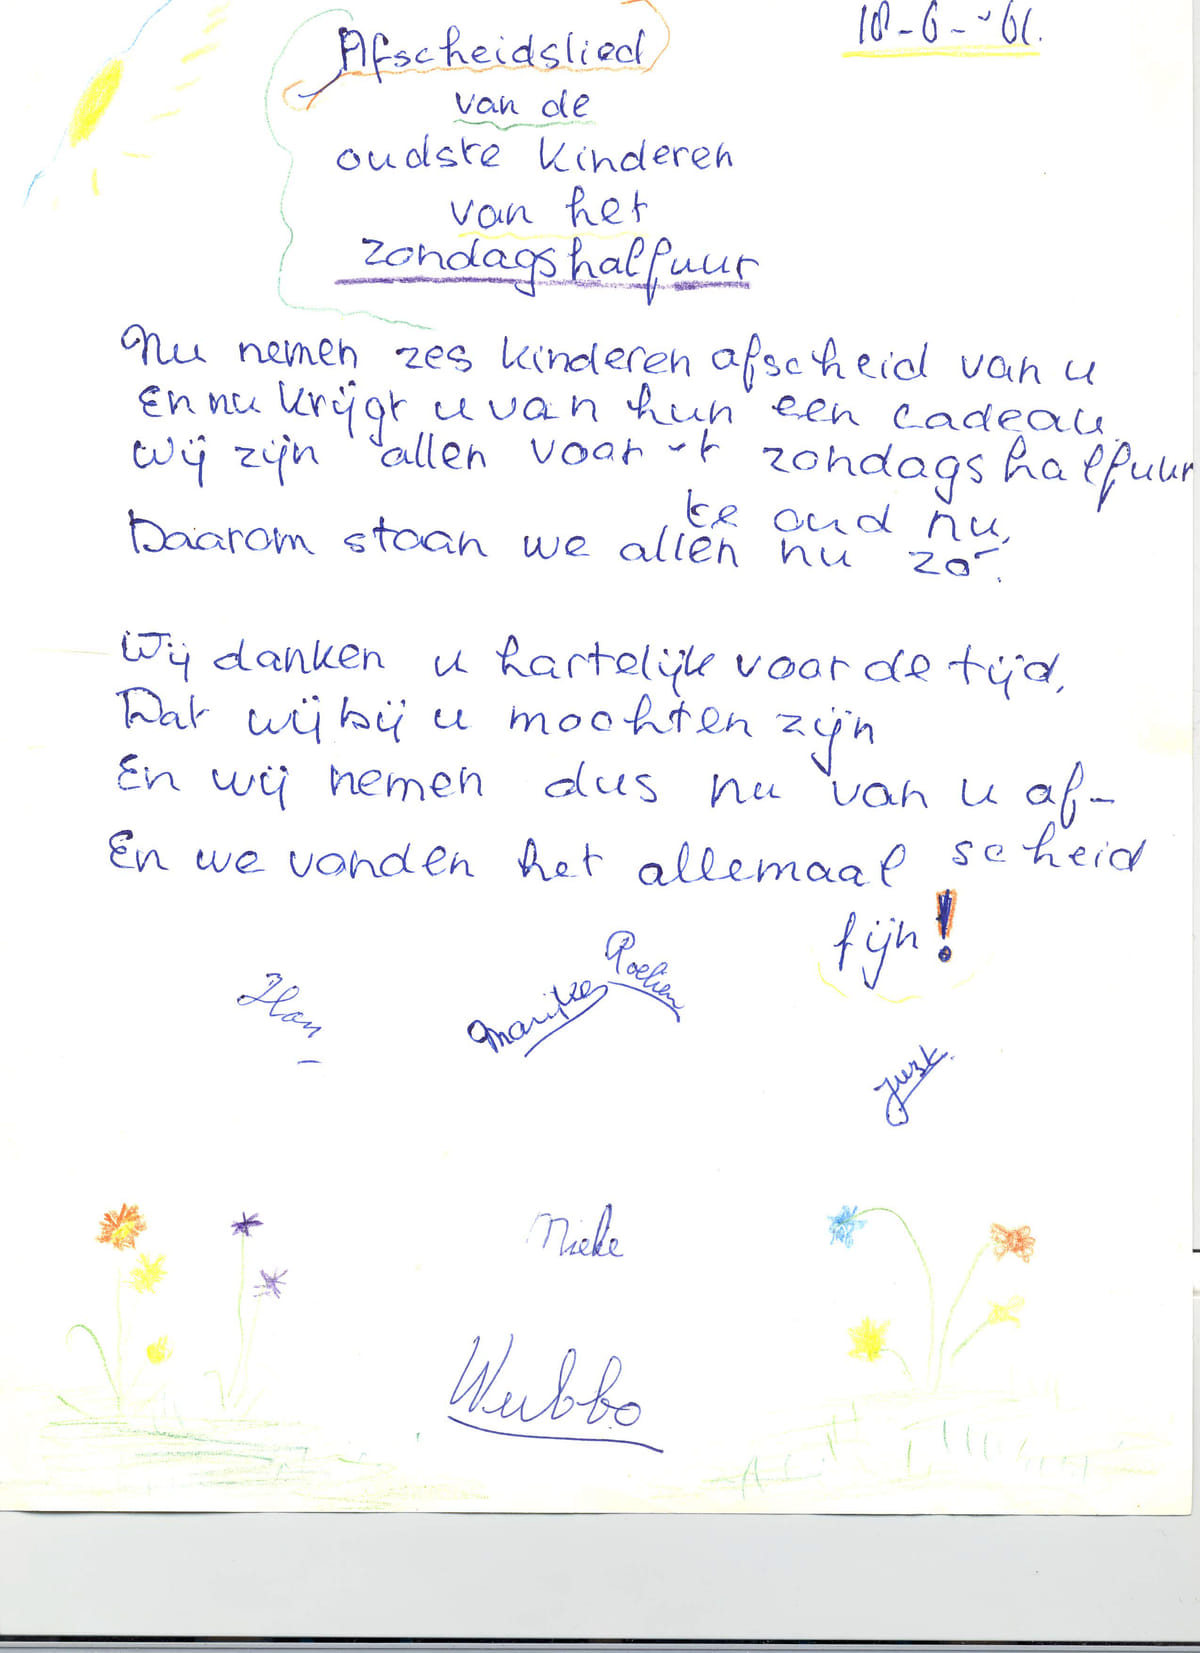 18-6-'61.
Afscheidslied
van de
oudste kinderen
van het
zondagshalfuur
Nu nemen zes kinderen afscheid van u
En nu krijgt u van hun een cadeau.
Wij zijn allen voor 't zondagshalfuur
te oud nu,
Daarom staan we allen nu zo-.
Wij danken u hartelijk voor de tijd,
Dat wij bij u mochten zijn
En wij nemen dus nu van u af-
scheid
En we vonden het allemaal
fijn!
Han
Marijke
Roelien
Juzk.
Mieke
Wubbo